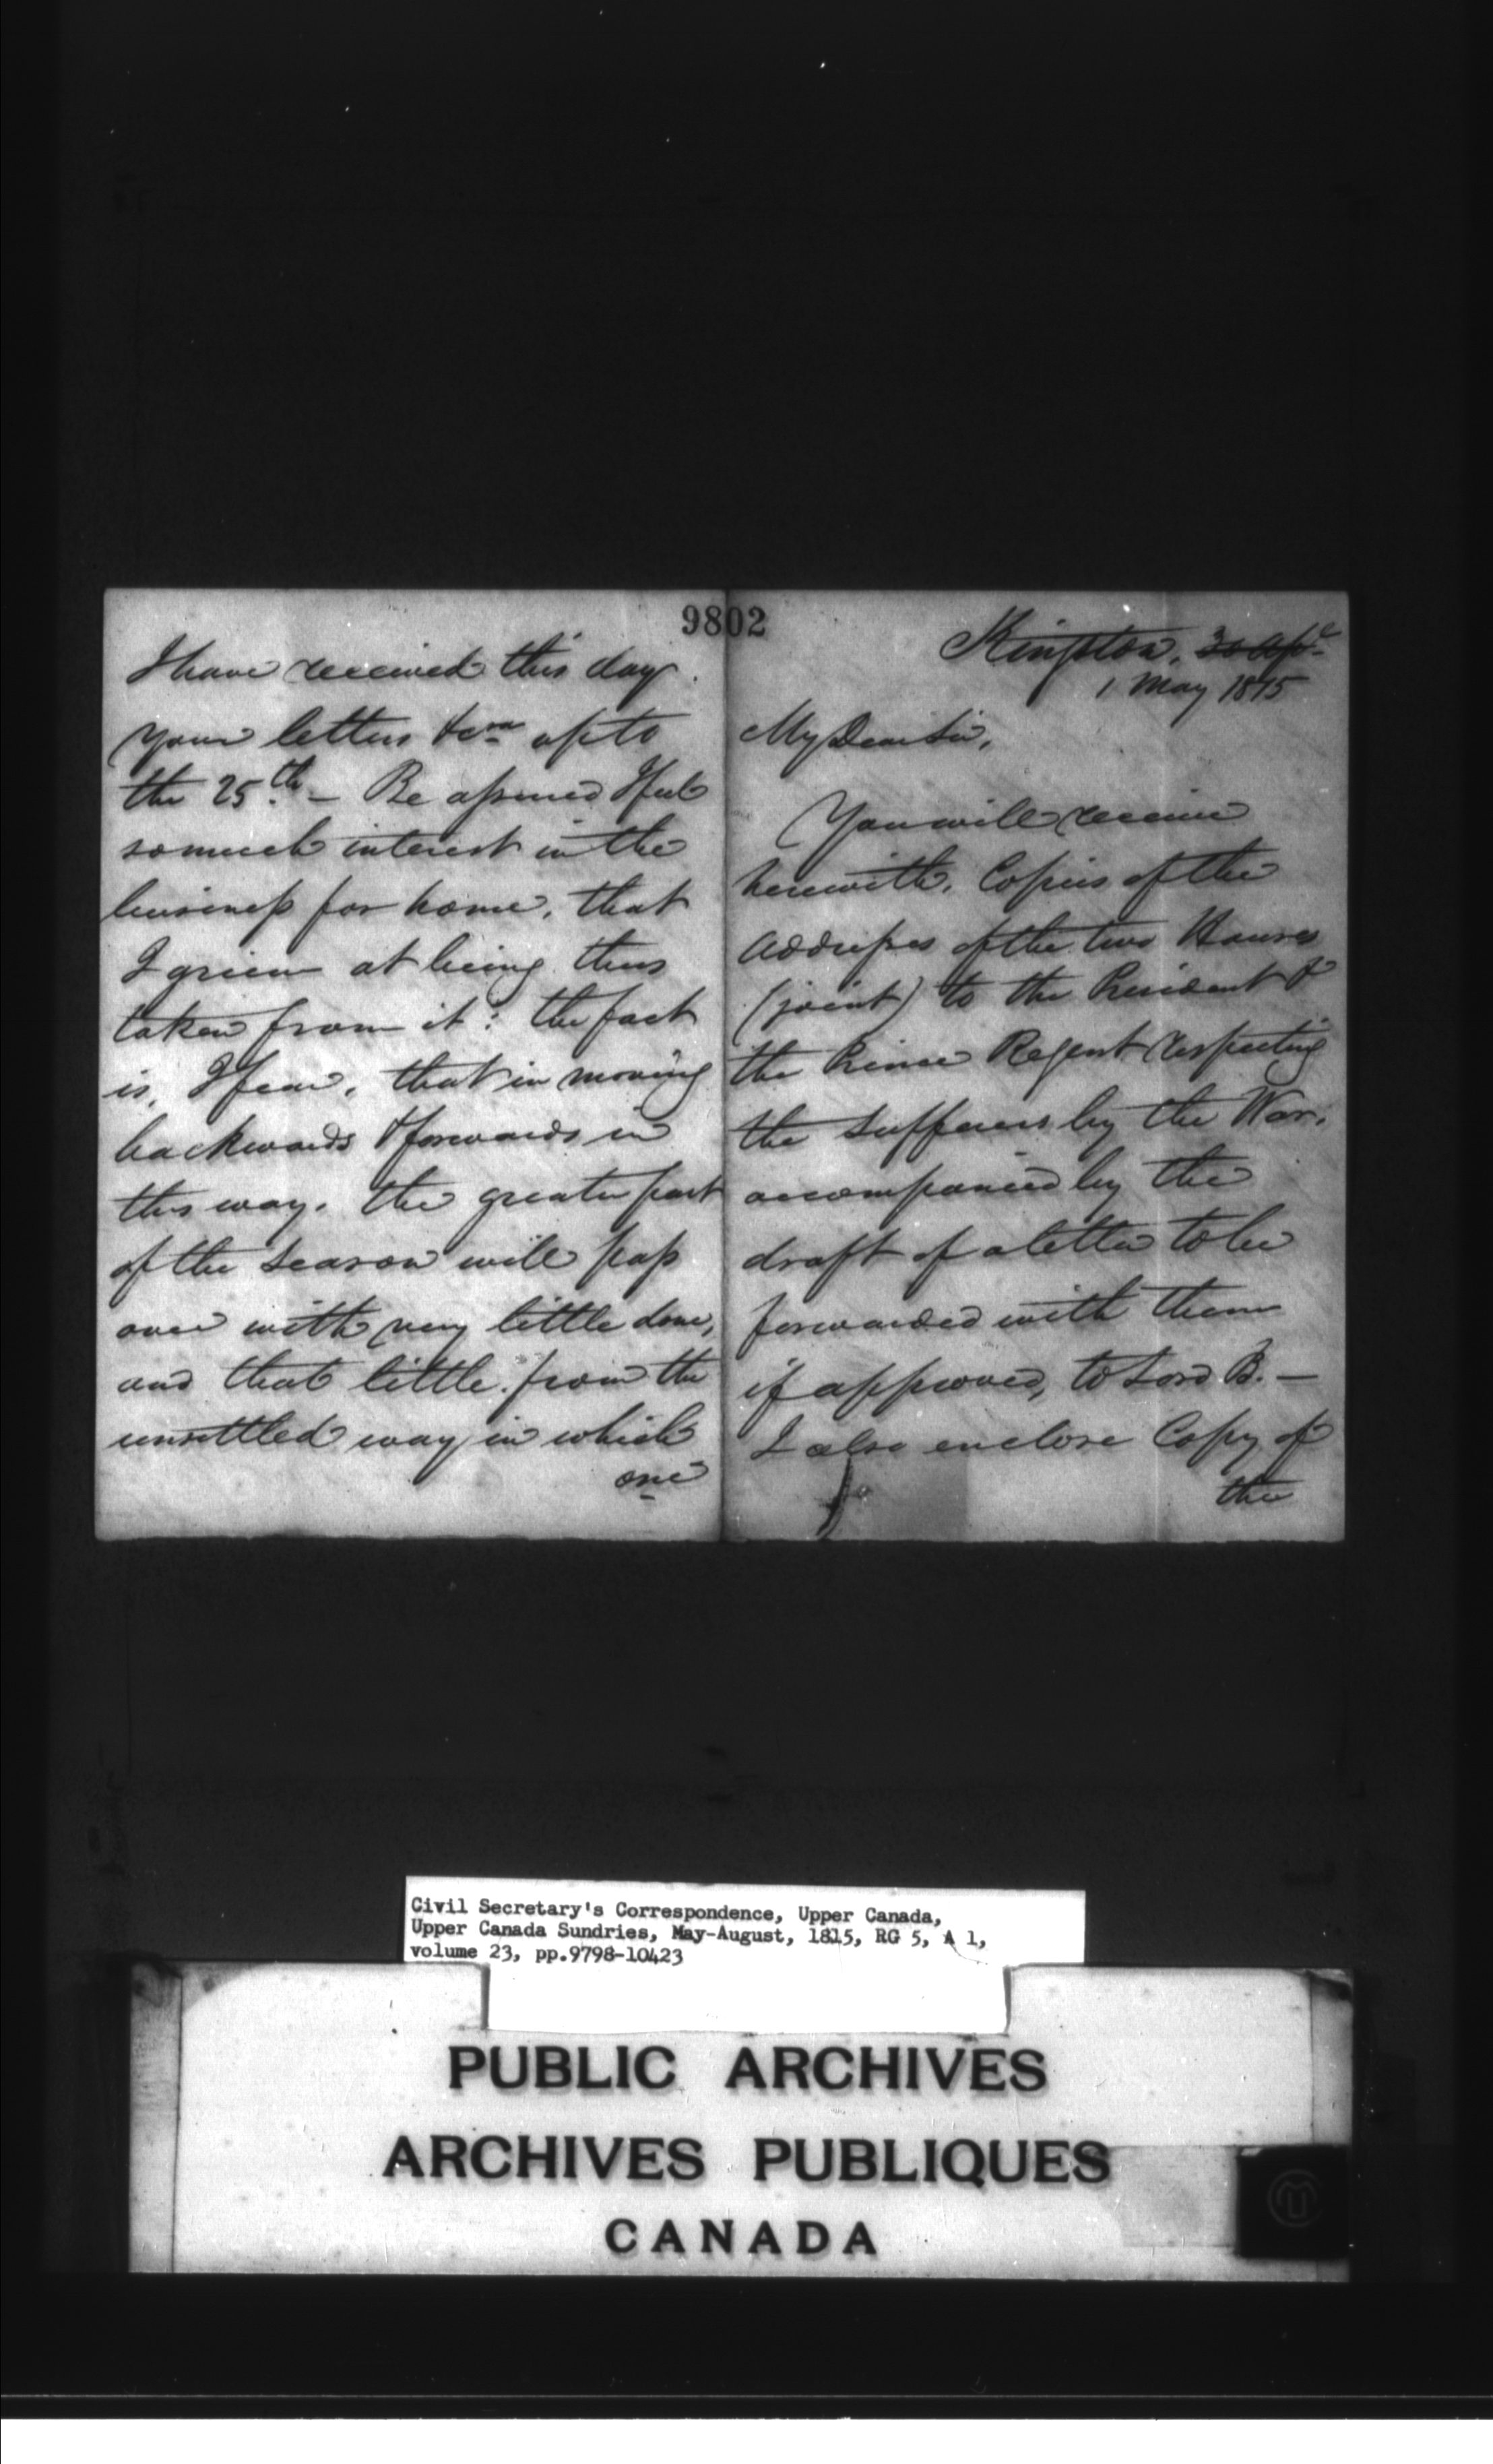 9802
I have received this day
your letters &ca up to
the 25th. — Be assured I feel
so much interest in the
business for home, that
I grieve at being thus
taken from it: the fact
is, I fear, that in moving
backwards & forwards in
this way, the greater part
of the season will pass
over with very little done,
and that little from the
unsettled way in which
one
Kingston, 30 Apl
1 May 1815
My Dear Sir,
You will receive
herewith, Copies of the
Addresses of the two Houses
(joint) to the President &
the Prince Regent respecting
the sufferers by the War,
accompanied by the
draft of a letter to be
forwarded with them
if approved, to Lord B. —
I also enclose Copy of
the
Civil Secretary's Correspondence, Upper Canada,
Upper Canada Sundries, May-August, 1815, RG 5, A 1,
volume 23, pp.9798-10423
PUBLIC ARCHIVES
ARCHIVES PUBLIQUES
CANADA